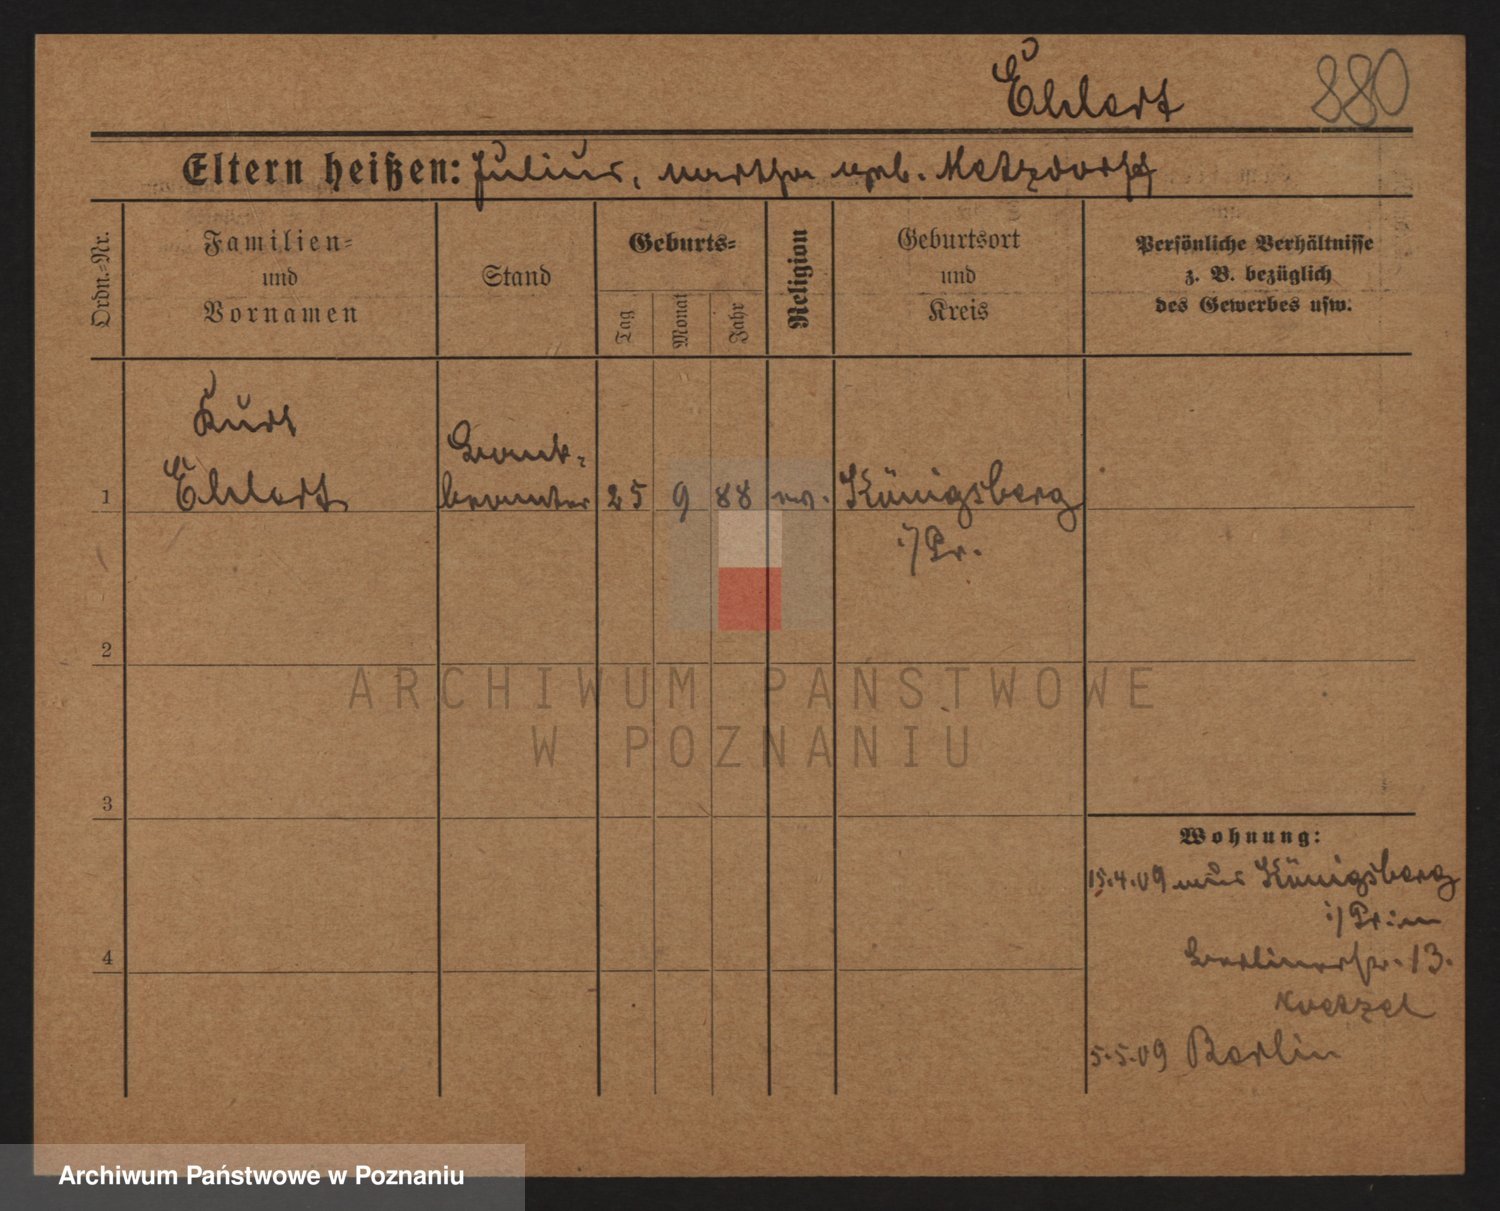 Ehlert 880
Eltern heißen: Julius, Martha geb. Metzdorff
Ordn.=Nr.
Familien=
und
Vornamen
Stand
Geburts=
Tag
Monat
Jahr
Religion
Geburtsort
und
Kreis
Persönliche Verhältnisse
z. B. bezüglich
des Gewerbes usw.
Kurt
Ehlert
Bank-
beamter
1
25 9 88 ev. Königsberg
i/Pr.
2
ARCHIWUM PAŃSTWOWE
W POZNANIU
3
Wohnung:
15.4.09 aus Königsberg
i/Pr.
4
Berlinerstr. 13.
5.5.09 Berlin
Archiwum Państwowe w Poznaniu